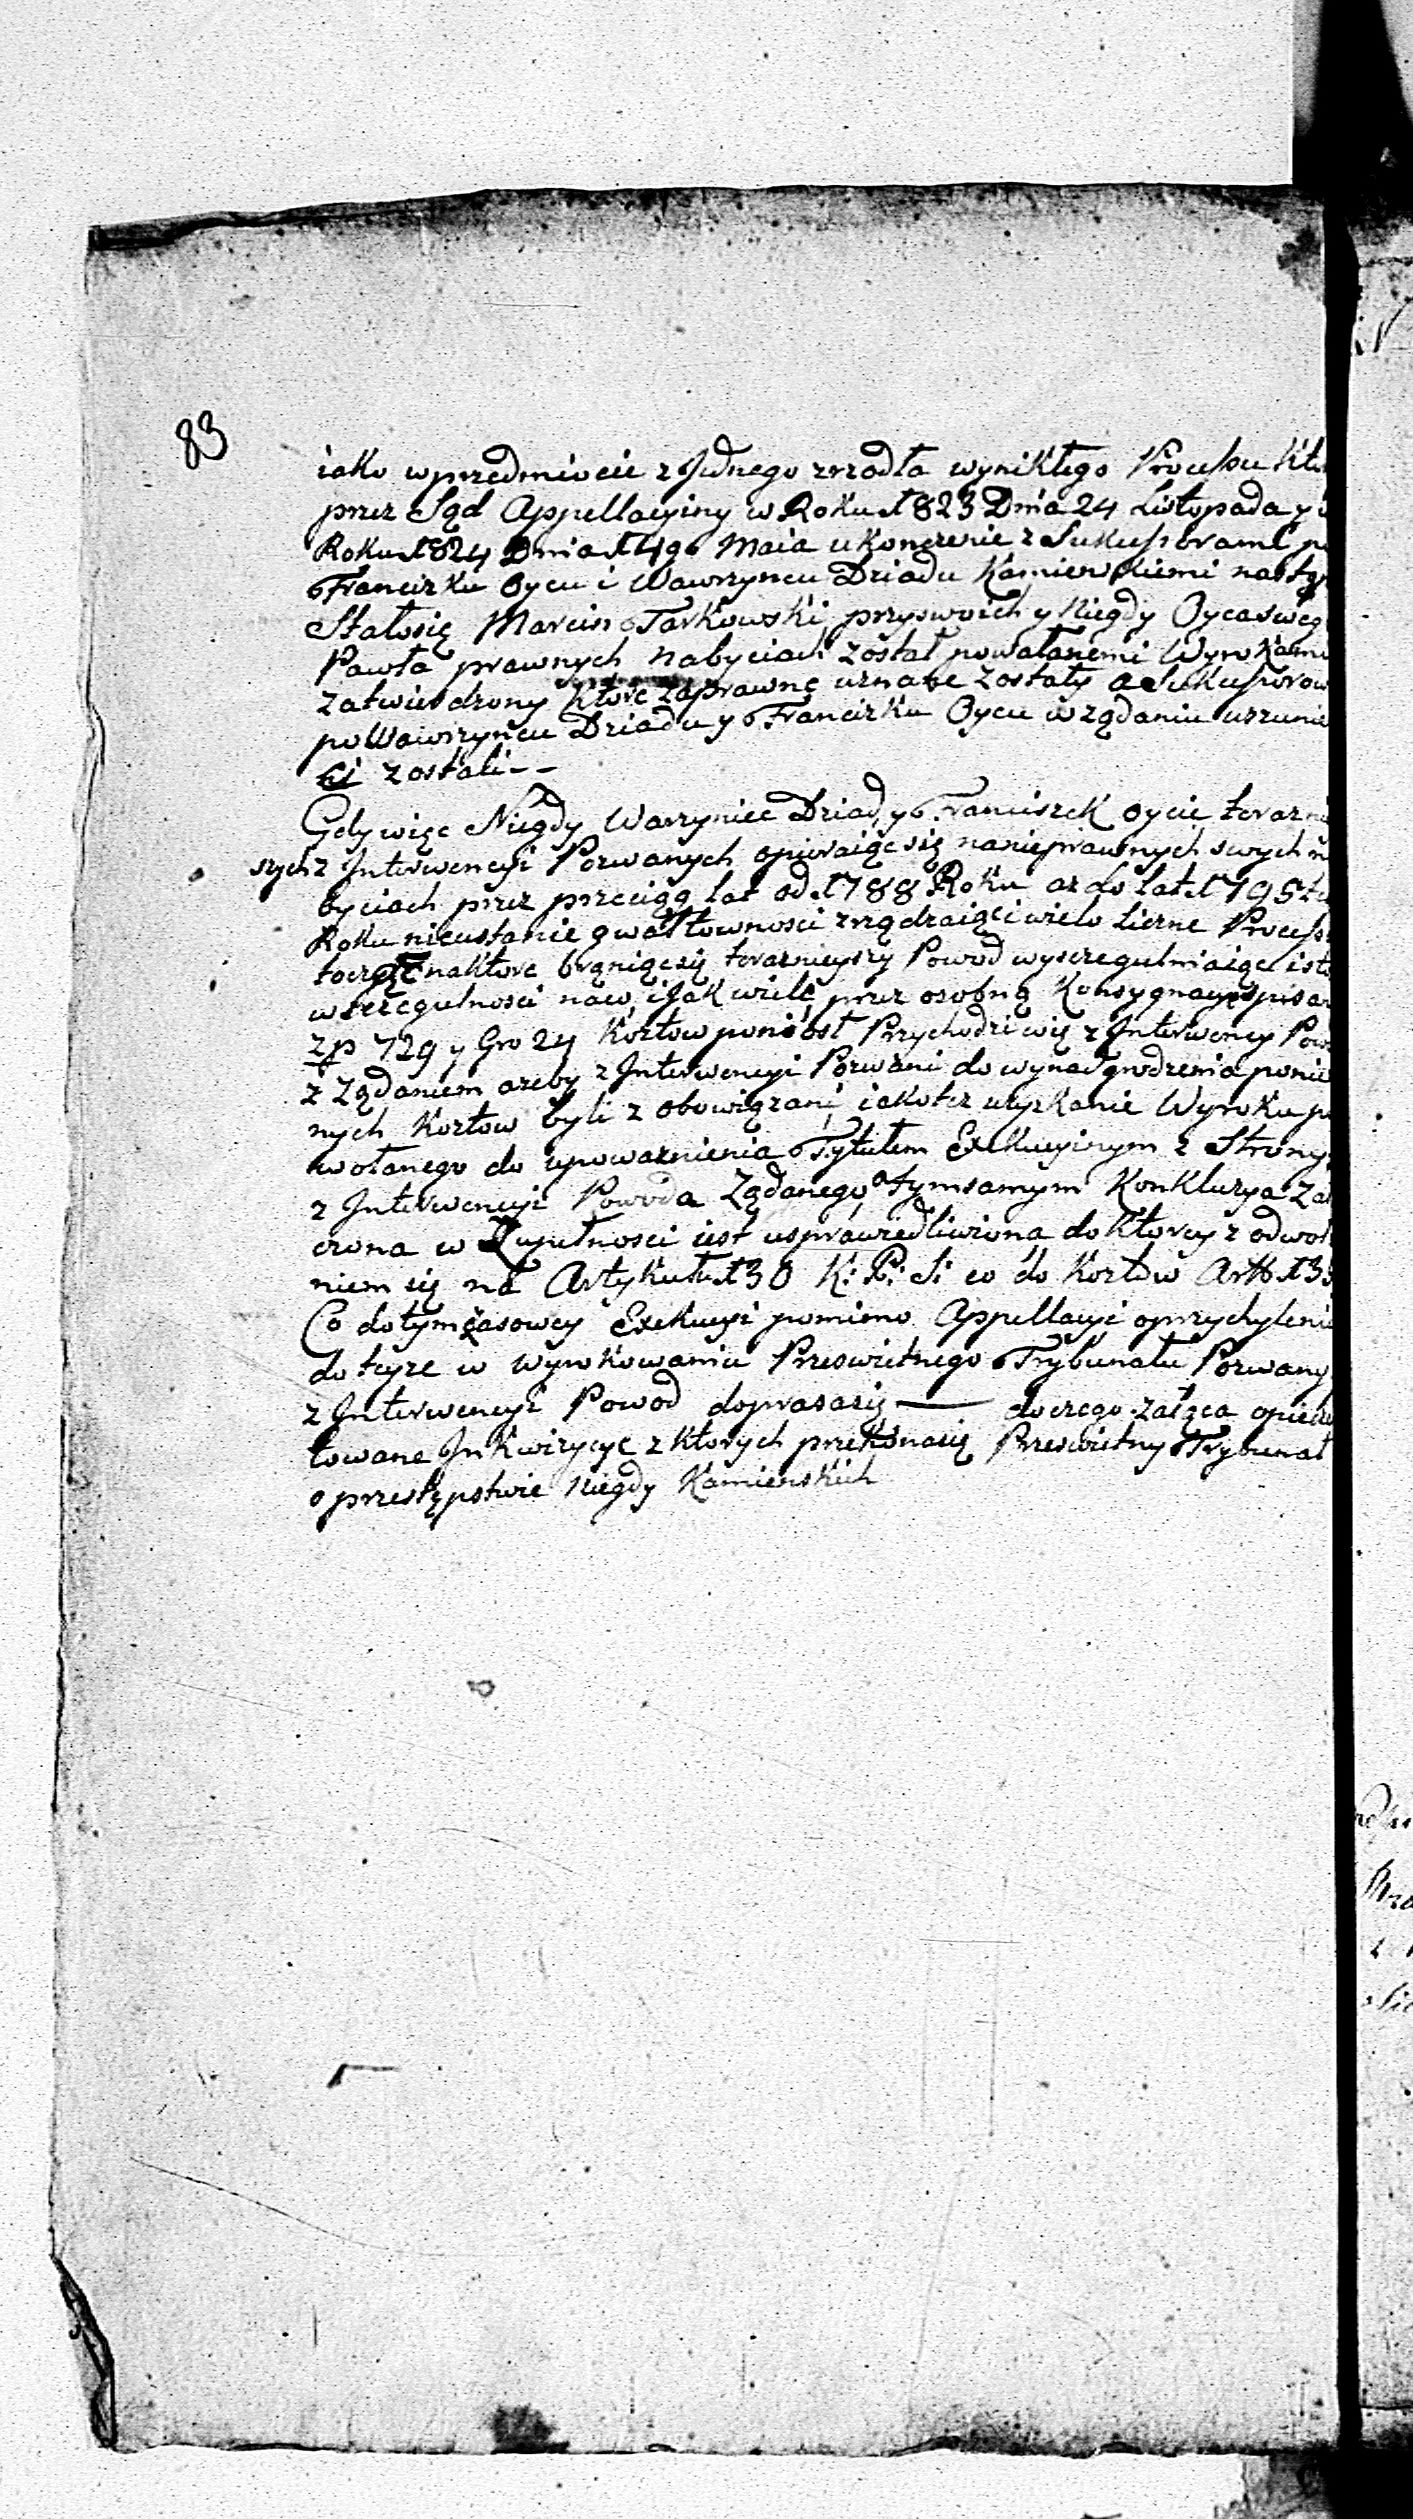 83
iako w przedmiocie z Jednego zrzodła wynikłego Processu Któ
przez Sąd Appellacyiny w Roku 1823 Dnia 24 Listopada y w
Roku 1824 Dnia 14go Maia ukonczenie z Sukcessorami po
Francirzku Oycu i Wawrzyncu Dziadu Kamienskiemi nastąp
Stałosię Marcin Tarkowski przyswoich y Niegdy Oyca sweg
Pawła prawnych nabyciach został powołanemi Wyrokami
zatwierdzony które zaprawne uznane zostały a Sukcessorow
po Wawrzyńcu Dziadu y Francirzku Oycu w żądaniu usunie
ci zostali - -
Gdy więc Niegdy Warzyniec Dziad y Franciszek oycie teraznie
szych z Interwencyi Pozwanych opieraiąc się na nieprawnych swych na
byciach przez przeciąg lat od 1788 Roku az do lat 1795
Roku nieustanie gwałtownosci zrządzaiąc i wielo Liczne Process
tocząc naktore brąniąc się teraznieyszy Powod wyszczegulniaiąc isto
w szczegulnosci naw i jak wiele przez osobną Konsygnacyę spisan
zp 729 y Gro 24 Kosztow poniósł Przychodzi więc z Interwency Powo
z Żądaniem azeby z Interwencyi Pozwani do wynadgrodzenia ponie
nych Kosztow byli z obowiązani iakotez uzyskanie Wyroku po
wołanego do upowaznienia Tytułem Exekucyinym z Strony
z Interwencyi Powoda Żądanego, a tymsamym Konkluzya Zał
czona w Zupułnosci iest usprawiedliwiona do Ktorey z odwoła
niem się na Artykułu 130 K: P: S: co do Kosztow Artt. 13
Co do tymczasowey Exekucyi pomimo Appellacyi oprzychylenie
do teyze w wyrokowaniu Przeswietnego Trybunału Pozwany
z Interwencyi Powod doprasasię —— do czego załąca opieczę
towane Inkwizycye z Ktorych przekonasię Przeswietny Trybunał
o przestępstwie Niegdy Kamienskich